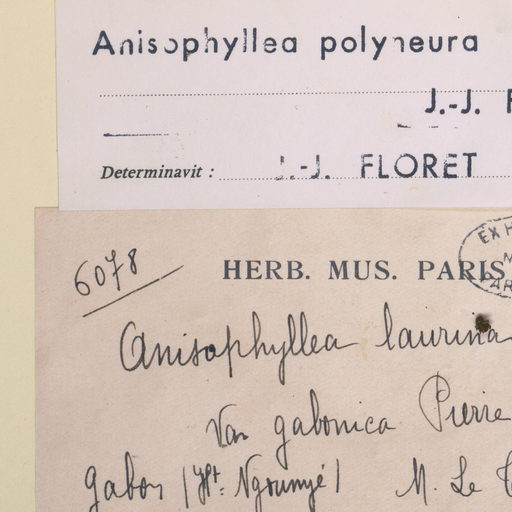 Anisophyllea polyneura
J.-J. F
Determinavit : J.-J. FLORET
EX H
6078
HERB. MUS. PARIS
Anisophyllea laurina
Var gabonica Pierre
Gabon (Ht. Ngounyé) M. Le